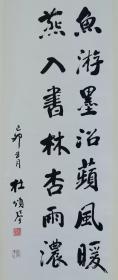 魚游墨沼蘋風暖
燕入書林杏雨濃
己卯五月
杜頌琴